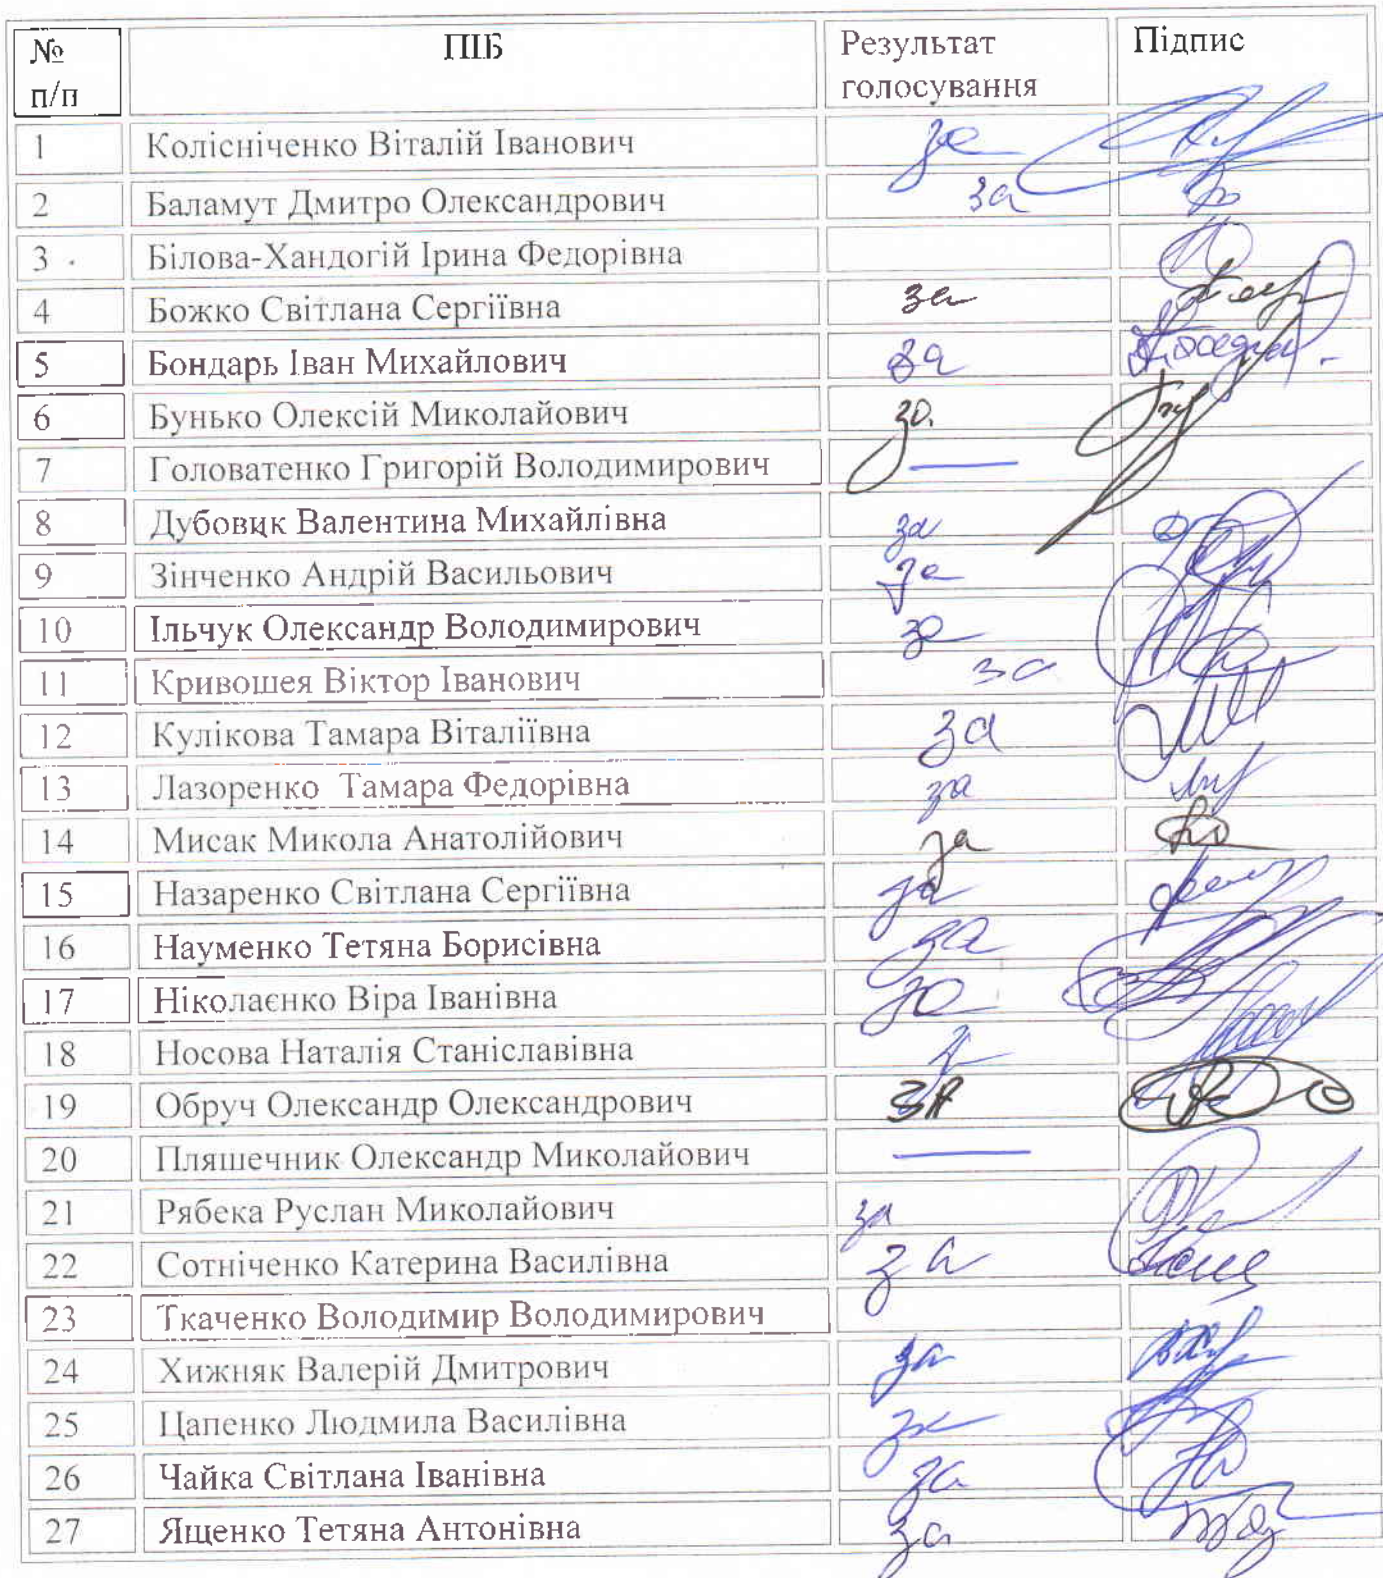 № п/п ПІБ Результат голосування Підпис
1 Колісніченко Віталій Іванович за
2 Баламут Дмитро Олександрович за
3 Білова-Хандогій Ірина Федорівна
4 Божко Світлана Сергіївна за
5 Бондарь Іван Михайлович за
6 Бунько Олексій Миколайович за
7 Головатенко Григорій Володимирович —
8 Дубовик Валентина Михайлівна за
9 Зінченко Андрій Васильович за
10 Ільчук Олександр Володимирович за
11 Кривошея Віктор Іванович за
12 Кулікова Тамара Віталіївна за
13 Лазоренко Тамара Федорівна за
14 Мисак Микола Анатолійович за
15 Назаренко Світлана Сергіївна за
16 Науменко Тетяна Борисівна за
17 Ніколаєнко Віра Іванівна за
18 Носова Наталія Станіславівна
19 Обруч Олександр Олександрович ЗА
20 Пляшечник Олександр Миколайович —
21 Рябека Руслан Миколайович за
22 Сотніченко Катерина Василівна за
23 Ткаченко Володимир Володимирович
24 Хижняк Валерій Дмитрович за
25 Цапенко Людмила Василівна за
26 Чайка Світлана Іванівна за
27 Ященко Тетяна Антонівна за